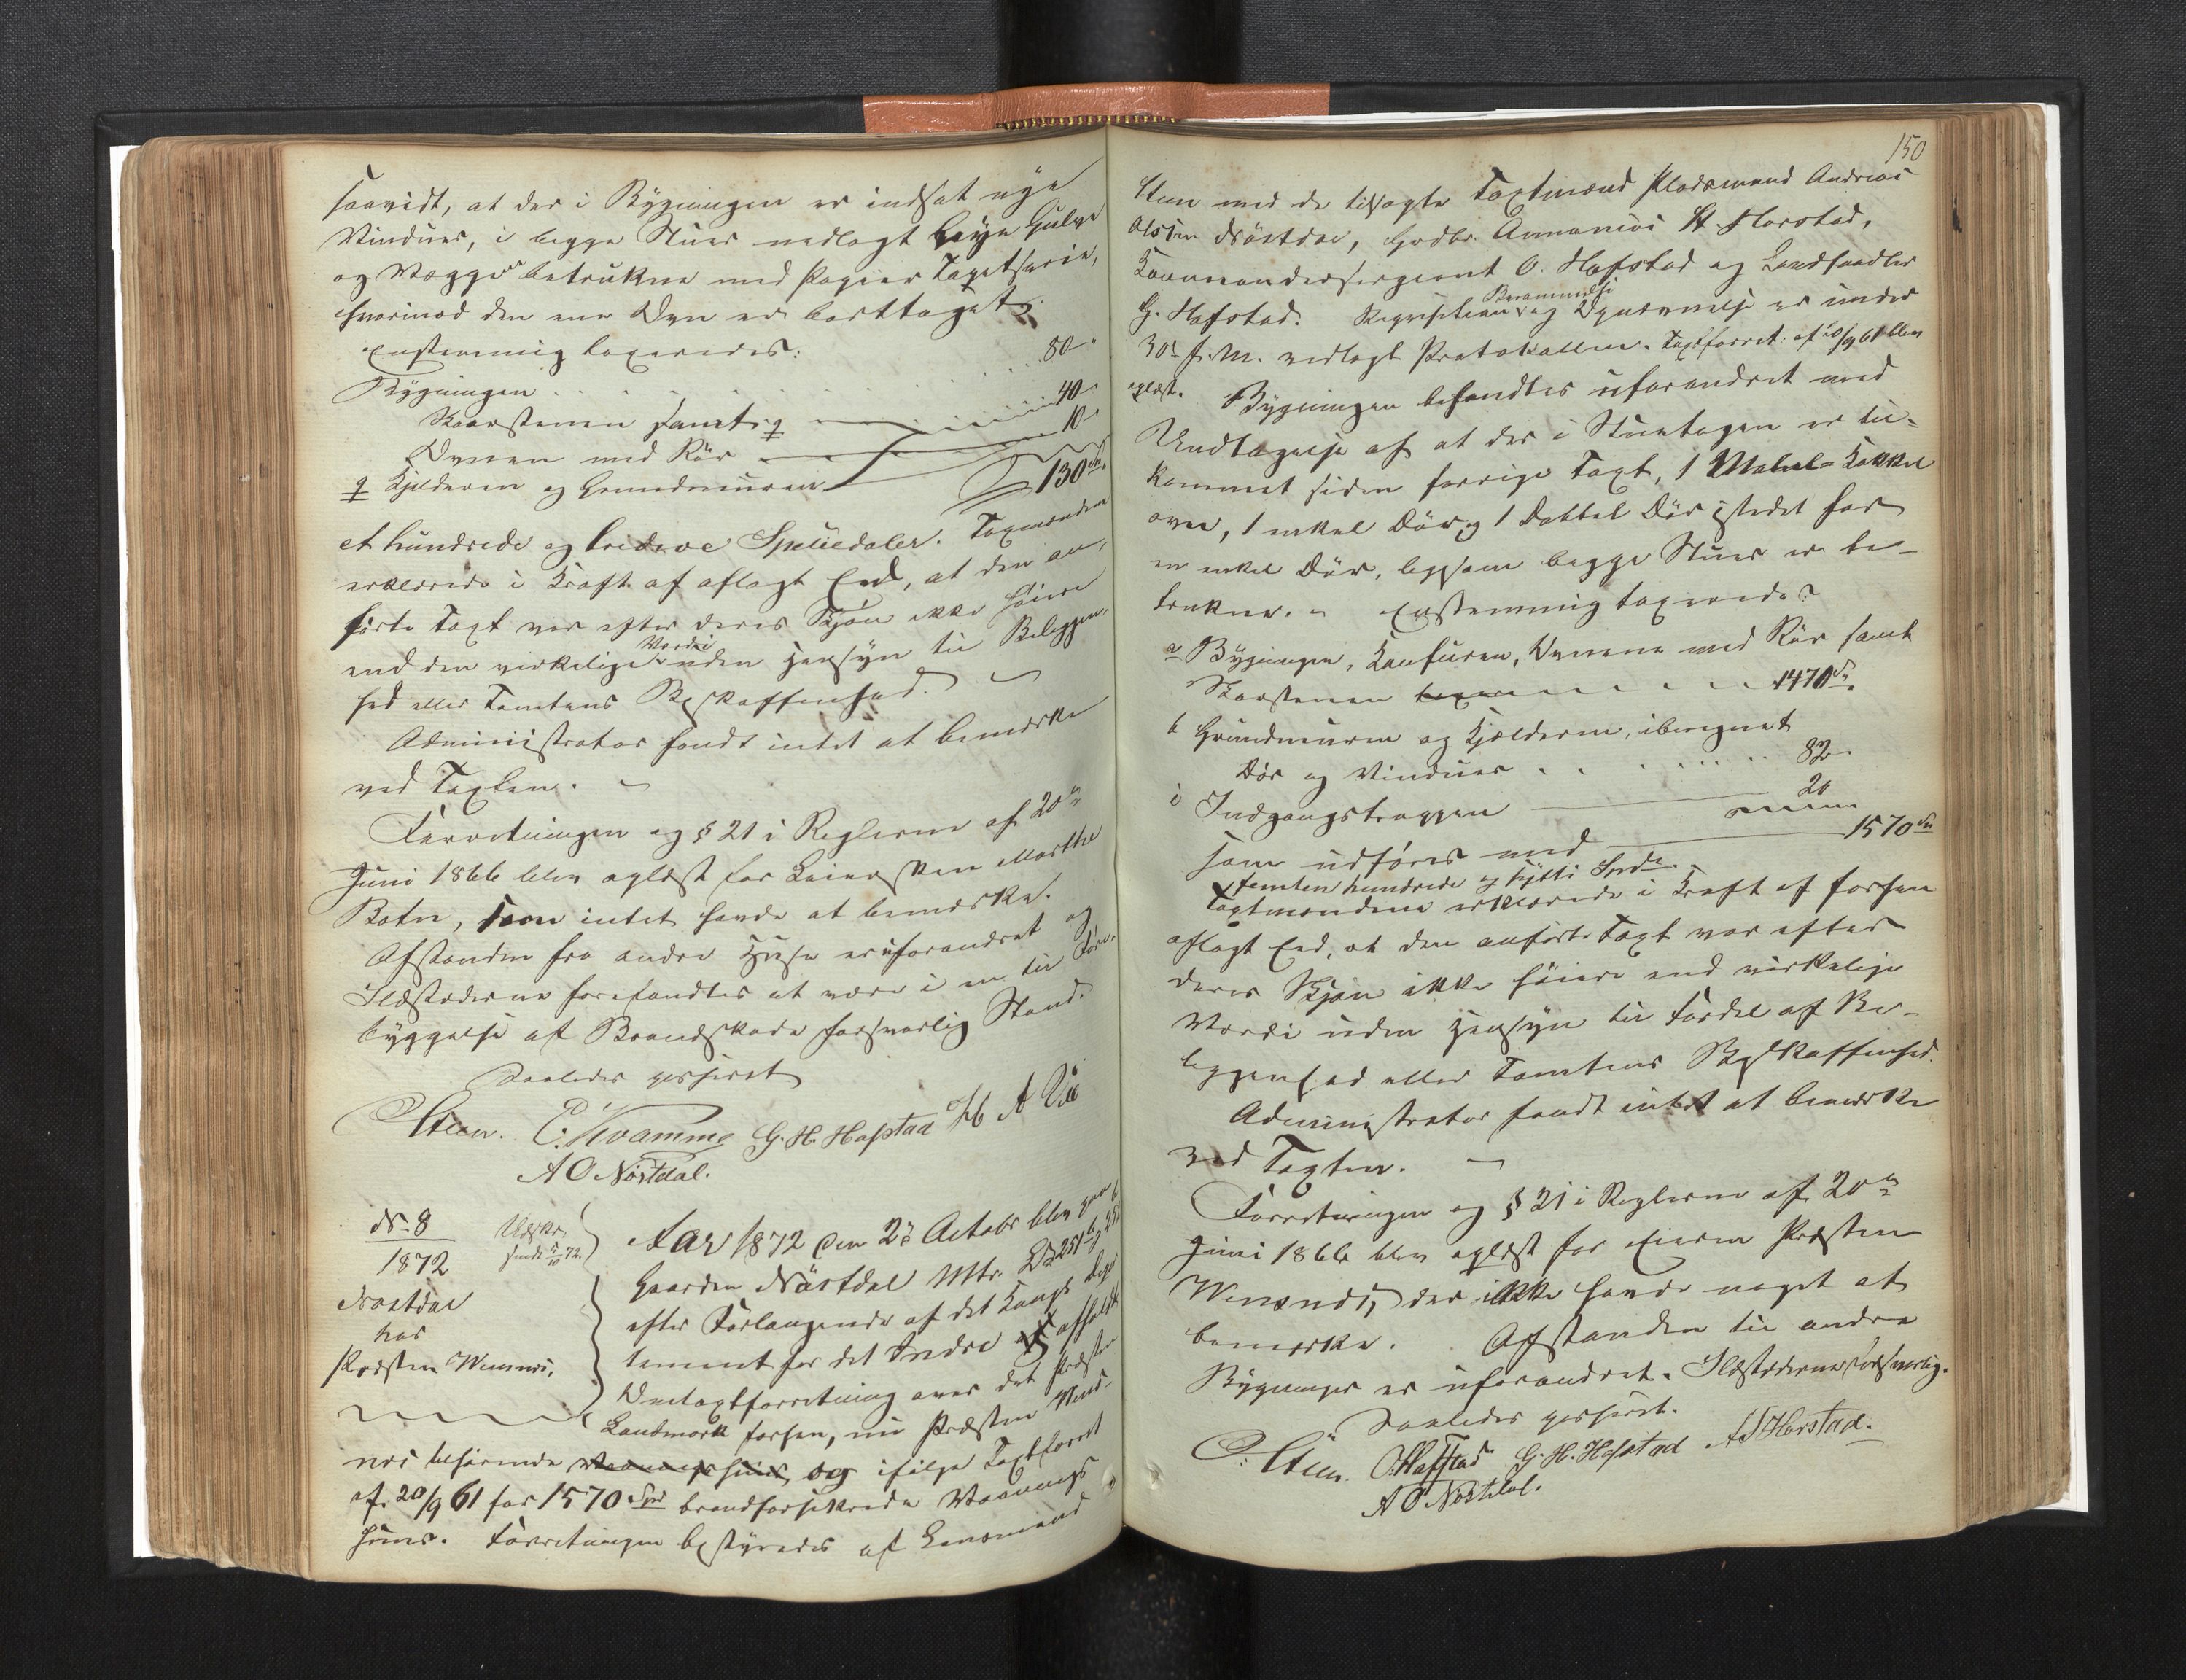 saavidt, at der i Bygningen er indsat nye
Vinduer, i begge Stuer nedlagt nye Gulve
og Vægge betrukne med Papier Tapetserie,
hvorimod den ene Ovn er borttaget.
Enstemmig taxeredes:
Bygningen . . . . 80 "
Skorstenen samt 40 "
Ovnen med Rør 10 "
Kjelderen og Grundmuren 130 Sp.
et hundrede og tredeve Speciedaler. Taxmændene
erklærede i Kraft af aflagt Eed, at den an-
førte Taxt var efter deres Skjøn ikke høiere
end den virkelige Værdi uden Hensyn til Beliggen-
hed eller Tomtens Beskaffenhed.
Administrator fandt intet at bemærke
ved Taxten.
Forretningen og § 21 i Reglerne af 20de
Juni 1866 blev oplæst for Eiersken Marthe
Botn, som intet havde at bemærke.
Afstanden fra andre Huse er uforandret og
Ildstederne forefandtes at være i en til Fore-
byggelse af Brandskade forsvarlig Stand.
Saaledes passeret
Steen. E. Kvamme G. H. Hafstad A Vie
A O Nøstdal.
No 8
1872
Nøstdal
hos
Præsten Wennæs,
Udskr.
sendt 5/10 72.
Aar 1872 den 2de Octobr blev paa
Gaarden Nøstdal Mtr. 251 b og
efter Forlangende af det Kongl. Depar-
tement for det Indre afholdt
Omtaxtforretning over det Præsten
Landmark forhen, nu Præsten Wen-
næs tilhørende Vaaningshuus og ifølge Taxtforret
af 20/9 61 for 1570 Spd brandforsikrede Vaanings
huus. Forretningen bestyredes af Lensmand
150
Steen med de tilsagte Taxtmænd Pladsmand Andreas
Olsen Nøstdal, Gbr. Annanias H. Horstad,
Kommandersergeant O. Hafstad og Landhandler
G. Hafstad. Requisition, Berammelse og Opnævnelse er under
30te f. M. vedlagt Protokollen. Taxtforret. af 20/9 61 blev
oplæst. Bygningen befandtes uforandret med
Undtagelse af at der i Stueetagen er til-
kommet siden forrige Taxt, 1 Kakkel
ovn, 1 enkel Dør og 1 Dobbel Dør istedet for
en enkel Dør, ligesom begge Stuer er be-
trukne. - Enstemmig taxeredes:
a Bygningen, Ovnene med Rør samt
Skorstenen 1470 Sp.
b Grundmuren og Kjelderen, iberegnet
Dør og Vinduer . . . . . 82 -
c Indgangstrappen 20
som udføres med 1570 Spd
femten hundrede og sytti Spd.
Taxtmændene erklærede i Kraft af forhen
aflagt Eed, at den anførte Taxt var efter
deres Skjøn ikke høiere end virkelige
Værdi uden Hensyn til Fordel af Be-
liggenhed eller Tomtens Beskaffenhed.
Administrator fandt intet at bemærke
ved Taxten.
Forretningen og § 21 i Reglerne af 20de
Juni 1866 blev oplæst for Eieren Præsten
Wennæs, der ikke havde noget at
bemærke. Afstanden til andre
Bygninger er uforandret. Ildstederne forsvarlig.
Saaledes passeret.
Steen. O. Hafstad G. H. Hafstad A H Horstad.
A O Nøstdal.